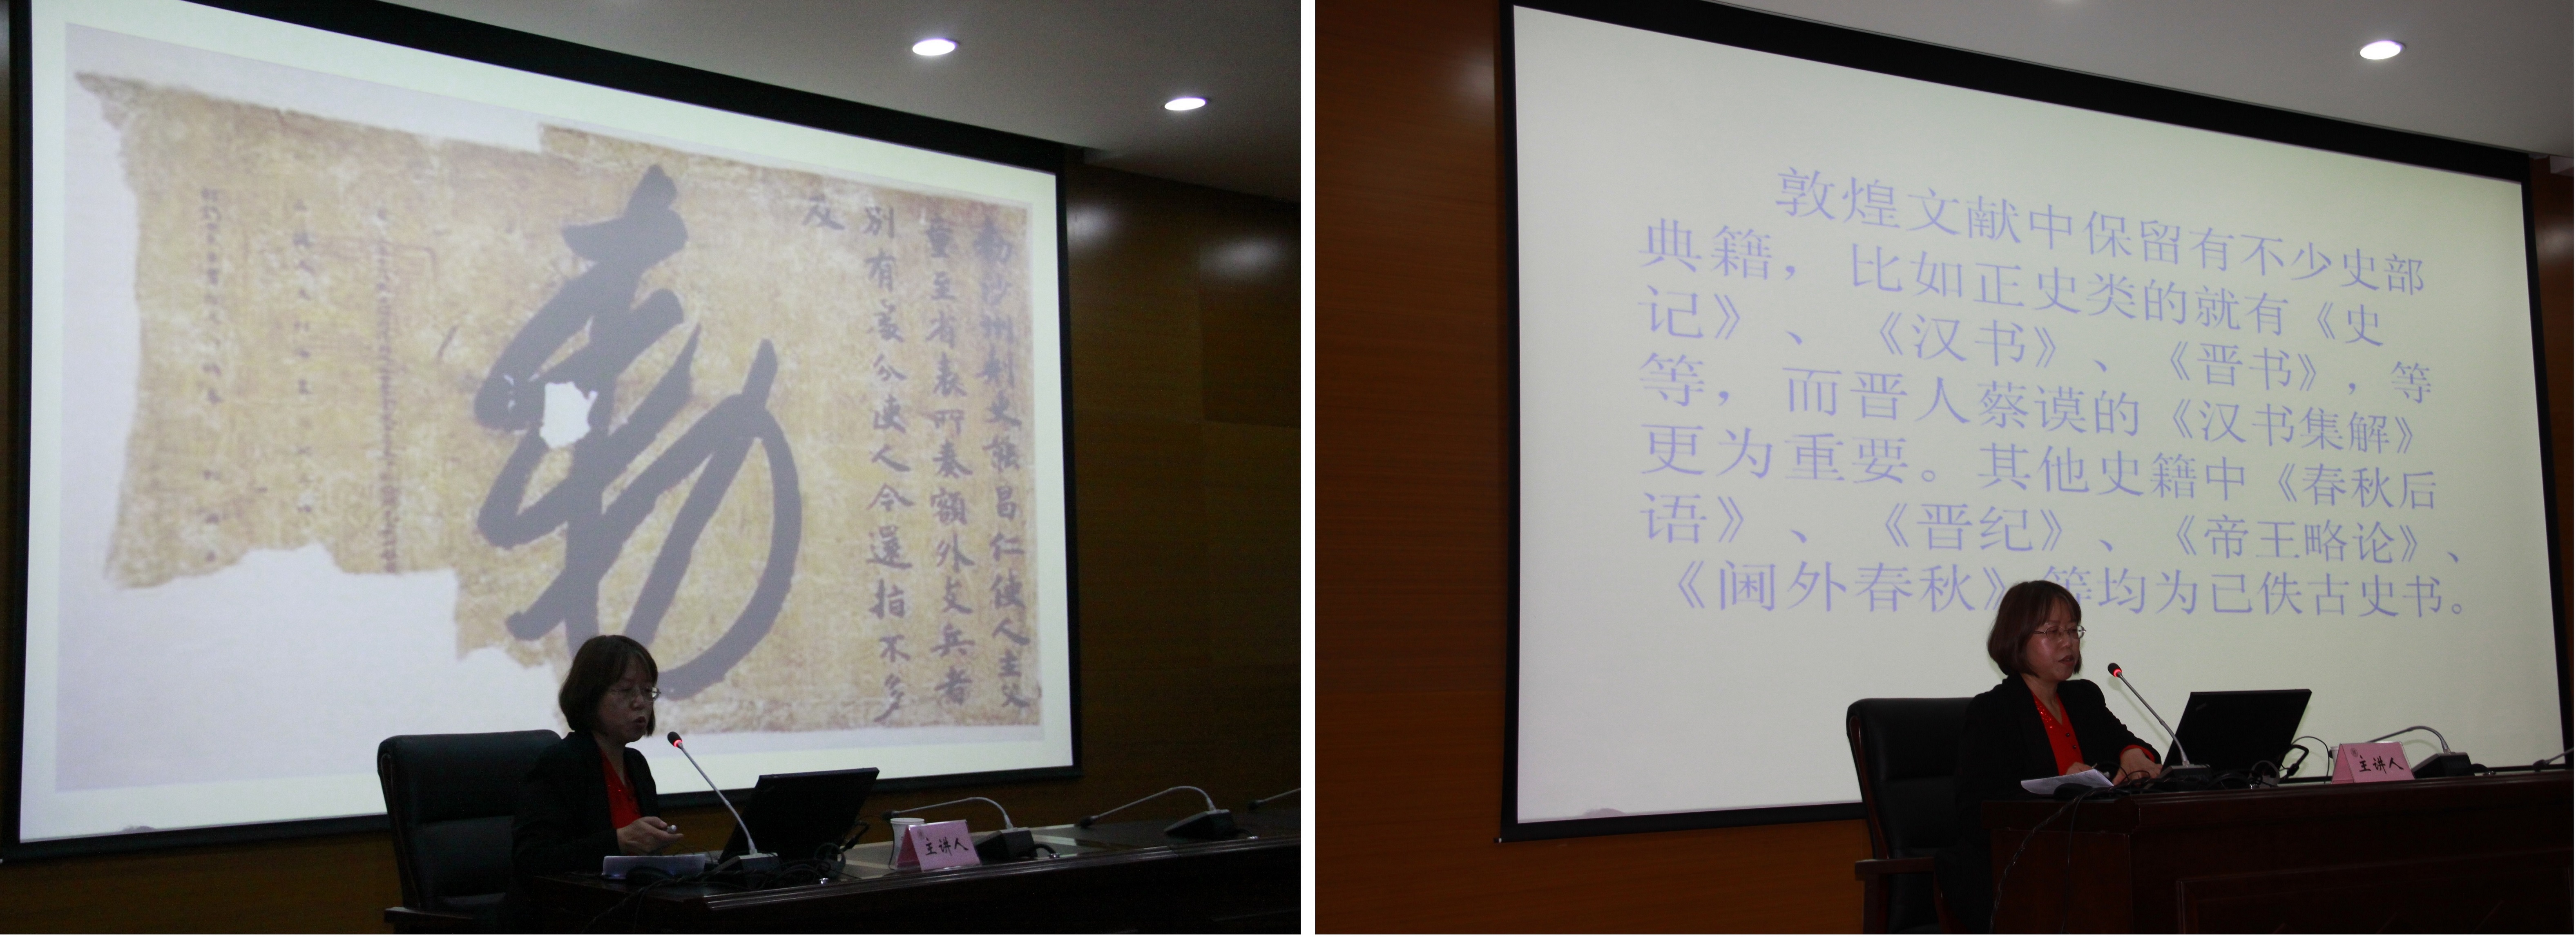 勅沙州刺史能昌仁使人主父
童至省表所奏額外支兵者
別有處分使人今還指不多
及
勅
主讲人
敦煌文献中保留有不少史部
典籍，比如正史类的就有《史
记》、《汉书》、《晋书》，等
等，而晋人蔡谟的《汉书集解》
更为重要。其他史籍中《春秋后
语》、《晋纪》、《帝王略论》、
《阃外春秋》等均为已佚古史书。
主讲人